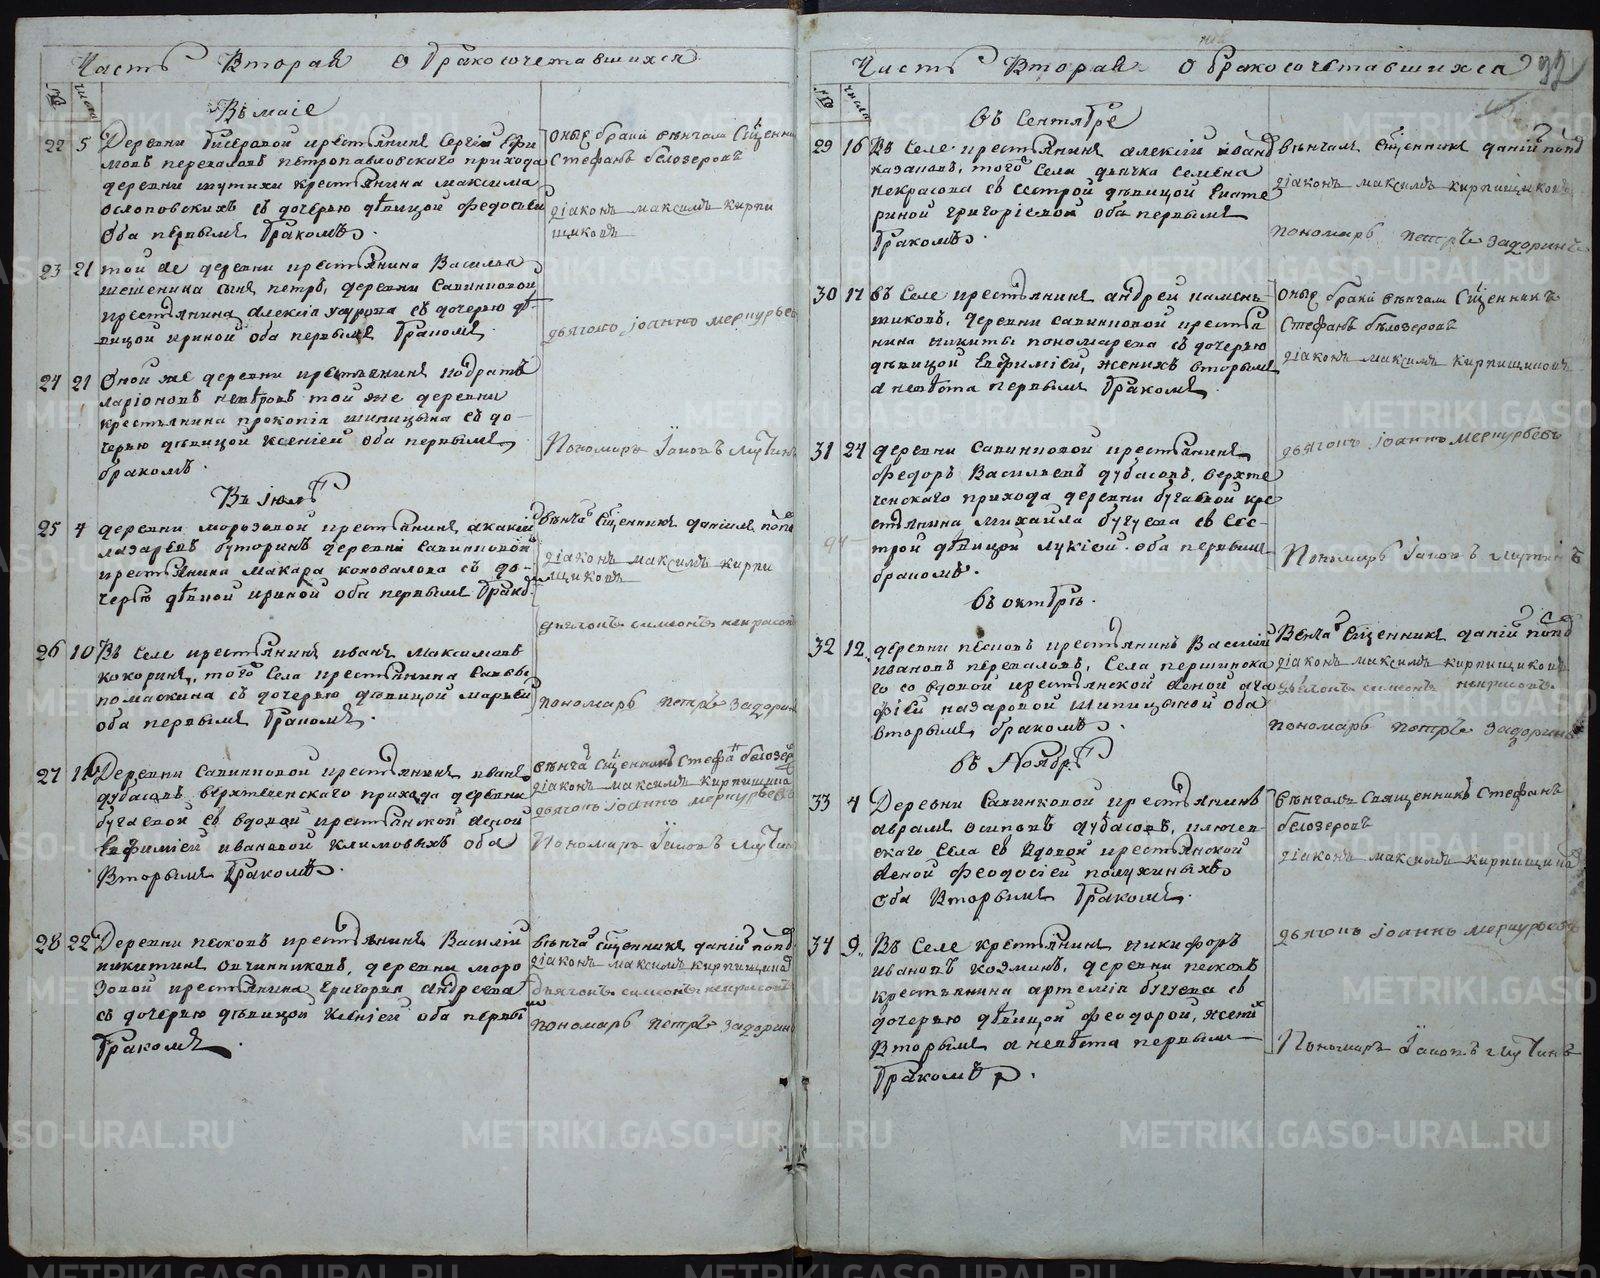 Часть Вторая о бракосочетавшихся
№ числа
Въ маіе
22 5 Деревни Бисеровой крестьянинъ Сергій Ефи
мовъ перваловъ петропавловскаго прихода
деревни шутихи крестьянина максима
ослоповскихъ съ дочерью девицой федосьеи
Оба первымъ бракомъ.
Оныя браки венчалъ Священникъ
Стефанъ белозеровъ
діаконъ максимъ кирпи
щиковъ
23 21 той же деревни крестьянина Василья
сынъ петръ, деревни Савинковой
крестьянина алексія с дочерью де-
вицой ириной оба первымъ бракомъ.
дьячокъ іоаннъ меркурьевъ
24 21 Оной же деревни крестьянинъ кодратъ
ларіоновъ петровъ той же деревни
крестьянина прокопія шипицына съ до-
черью девицой ксеніей оба первымъ
бракомъ.
Пономарь Іаковъ
Въ іюле
25 4 деревни морозовой крестьянинъ акакій
лазаревъ буторинъ деревни Савинковой
крестьянина макара коновалова съ до-
черью ириной оба первымъ
Венча Священникъ даніилъ поповъ
діаконъ максимъ кирпи
щиковъ
дьячокъ симеонъ некрасовъ
26 10 Въ Селе крестьянинъ иванъ максимовъ
кокоринъ, того Села крестьянина Саввы
помаскина съ дочерью девицой марьей
оба первымъ бракомъ.
пономарь петръ задоринъ
27 Деревни Савинковой крестьянинъ иванъ
дубасовъ верхтеченскаго прихода деревни
бугаевой съ вдовой крестьянской женой
Евфиміей ивановой климовыхъ оба
Вторымъ бракомъ.
венча Священникъ Стефа белозеровъ
діаконъ максимъ кирпищиковъ
дьячокъ іоаннъ меркурьевъ
Пономарь Іаковъ
28 22 Деревни песковъ крестьянинъ Василій
никитинъ Овчинниковъ, деревни моро
зовой крестьянина григорья андреева
съ дочерью девицой ксеніей оба первы
бракомъ.
венча Священникъ даніи попов
діаконъ максимъ кирпищиковъ
дьячокъ симеонъ некрасовъ
пономарь петръ задоринъ
Часть Вторая о бракосочетавшихся
№ числа
въ Сентябре
29 16 Въ Селе крестьянинъ алексій иванов
казановъ, того Села дьячка Семена
некрасова съ сестрой девицой Екате
риной григоріевой оба первымъ
бракомъ.
венчалъ Священникъ даніи поповъ
діаконъ максимъ кирпищиковъ
пономарь петръ задоринъ
30 17 въ Селе крестьянинъ андрей камень
щиковъ, деревни савинковой крестья
нина никиты пономарева съ дочерью
девицой Евфиміей, женихъ вторымъ
а невеста первымъ бракомъ.
Оныя браки венчалъ Священникъ
Стефанъ белозеровъ
діаконъ максимъ кирпищиковъ
31 24 деревни Савинковой крестьянинъ
федоръ Васильевъ дубасовъ, верхте
ченскаго прихода деревни бугаевой кре
стьянина михайла бугуева съ Сес-
трой девицой лукіей. оба первымъ
бракомъ.
дьячокъ іоаннъ меркурьевъ
Пономарь Іаковъ
въ октябре.
32 12 деревни песковъ крестьянинъ Василій
ивановъ перваловъ, Села першинска
го со вдовой крестьянской женой ага
фіей назаровой Шипицыной оба
вторымъ бракомъ.
Венча Священникъ даніи попов
діаконъ максимъ кирпищиковъ
дьячокъ симеонъ некрасовъ
пономарь петръ задоринъ
въ Ноябре
33 4 Деревни Савинковой крестьянинъ
аврамъ осиповъ дубасовъ, ключев
скаго Села съ вдовой крестьянской
женой феодосіей
Оба Вторымъ бракомъ.
Венчалъ Священникъ Стефанъ
белозеровъ
діаконъ максимъ кирпищиковъ
34 9 Въ Селе крестьянинъ никифоръ
ивановъ козминъ, деревни песковъ
крестьянина артемія бугуева съ
дочерью девицой феодорой, жени
Вторымъ а невеста первымъ
бракомъ.
дьячокъ іоаннъ меркурьевъ
Пономарь Іаковъ
METRIKI.GASO-URAL.RU